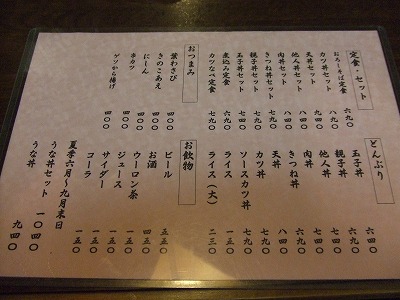 定食・セット
おろしそば定食 六九〇
カツ丼セット 九四〇
天丼セット
他人丼セット
肉丼セット
きつね丼セット
親子丼セット
玉子丼セット 七九〇
煮込み定食 七九〇
カツなべ定食 七九〇
おつまみ
葉わさび 四〇〇
きのこあえ 四〇〇
にーん 四〇〇
串カツ 四〇〇
ゲソから揚げ 四〇〇
どんぶり
玉子丼 六四〇
親子丼 六九〇
他人丼
肉丼
きつね丼 六四〇
天丼
カツ丼 七九〇
ソースカツ丼 七九〇
ライス 一五〇
ライス（大） 二三〇
お飲物
ビール 五五〇
お酒 四五〇
ウーロン茶 一五〇
ジュース 一五〇
サイダー 一五〇
コーラ 一五〇
夏季六月〜九月末日
うな丼セット 一〇四〇
うな丼 九四〇